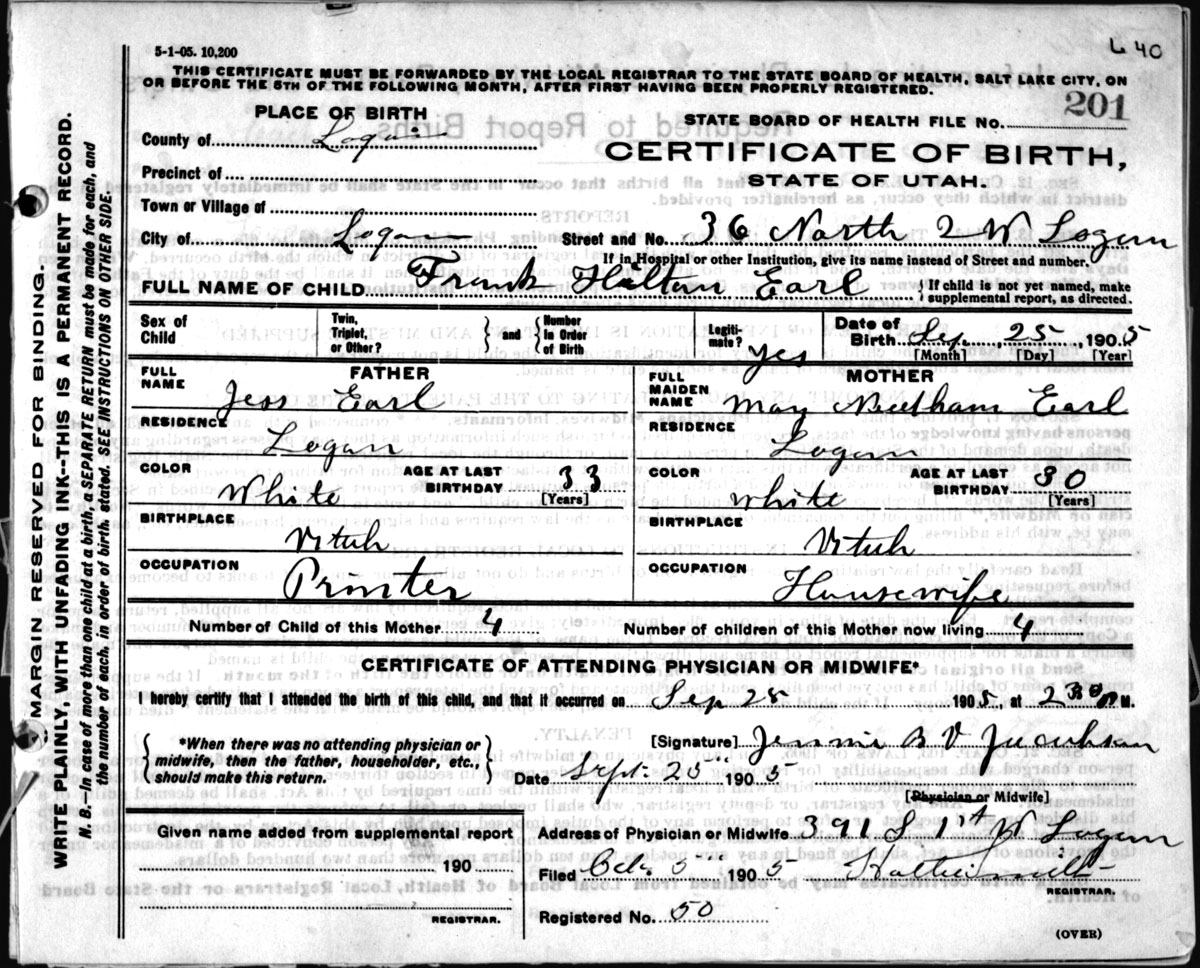 5-1-05. 10,200
640
THIS CERTIFICATE MUST BE FORWARDED BY THE LOCAL REGISTRAR TO THE STATE BOARD OF HEALTH, SALT LAKE CITY, ON
OR BEFORE THE 5TH OF THE FOLLOWING MONTH, AFTER FIRST HAVING BEEN PROPERLY REGISTERED.
MARGIN RESERVED FOR BINDING.
WRITE PLAINLY, WITH UNFADING INK--THIS IS A PERMANENT RECORD.
N. B.—In case of more than one child at a birth, a SEPARATE RETURN must be made for each, and
the number of each, in order of birth, stated. SEE INSTRUCTIONS ON OTHER SIDE.
PLACE OF BIRTH
County of Logan
Precinct of
Town or Village of
City of Logan
STATE BOARD OF HEALTH FILE NO. 201
CERTIFICATE OF BIRTH,
STATE OF UTAH.
Street and No. 36 North 2 W Logan
If in Hospital or other Institution, give its name instead of Street and number.
FULL NAME OF CHILD Frank Halton Earl
If child is not yet named, make
supplemental report, as directed.
Sex of
Child
Twin,
Triplet,
or Other?
and
Number
in Order
of Birth
Legiti-
mate? yes
Date of
Birth Sep. 25, 1905
[Month] [Day] [Year]
FATHER
FULL
NAME Jess Earl
RESIDENCE Logan
COLOR White
AGE AT LAST
BIRTHDAY 33
[Years]
BIRTHPLACE Utah
OCCUPATION Printer
MOTHER
FULL
MAIDEN
NAME May Needham Earl
RESIDENCE Logan
COLOR White
AGE AT LAST
BIRTHDAY 30
[Years]
BIRTHPLACE Utah
OCCUPATION Housewife
Number of Child of this Mother 4
Number of children of this Mother now living 4
CERTIFICATE OF ATTENDING PHYSICIAN OR MIDWIFE*
I hereby certify that I attended the birth of this child, and that it occurred on Sep 25 1905, at 2 30 P M.
*When there was no attending physician or
midwife, then the father, householder, etc.,
should make this return.
[Signature] Jennie B V Jacobson
Date Sept. 25 1905
[Physician or Midwife]
Given name added from supplemental report
190
REGISTRAR.
Address of Physician or Midwife 391 S 1st W Logan
Filed Oct. 5 1905 Hattie Smith
REGISTRAR.
Registered No. 50
(OVER)